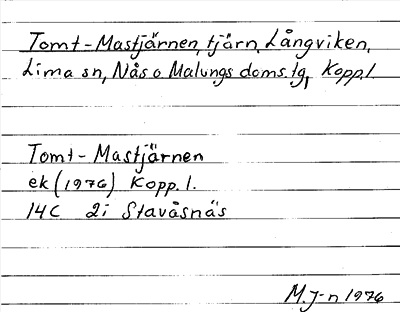 Tomt-Mastjärnen, tjärn, Långviken,
Lima sn, Nås o Malungs doms.tg, Kopp.l
Tomt-Mastjärnen
ek (1976) Kopp. l.
14C 2i Stavåsnäs
M.J-n 1976